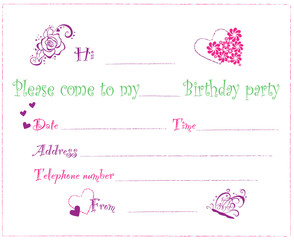 Hi:
Please come to my______ Birthday party
Date______ Time______
Address______
Telephone number______
From______